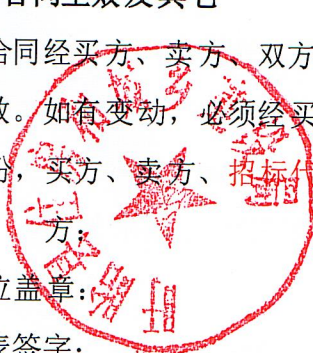 合同生效及其它
合同经买方、卖方、双方
效。如有变动，必须经买
份，买方、卖方、招标代
方；
位盖章：
表签字：
盱眙县住房和城乡